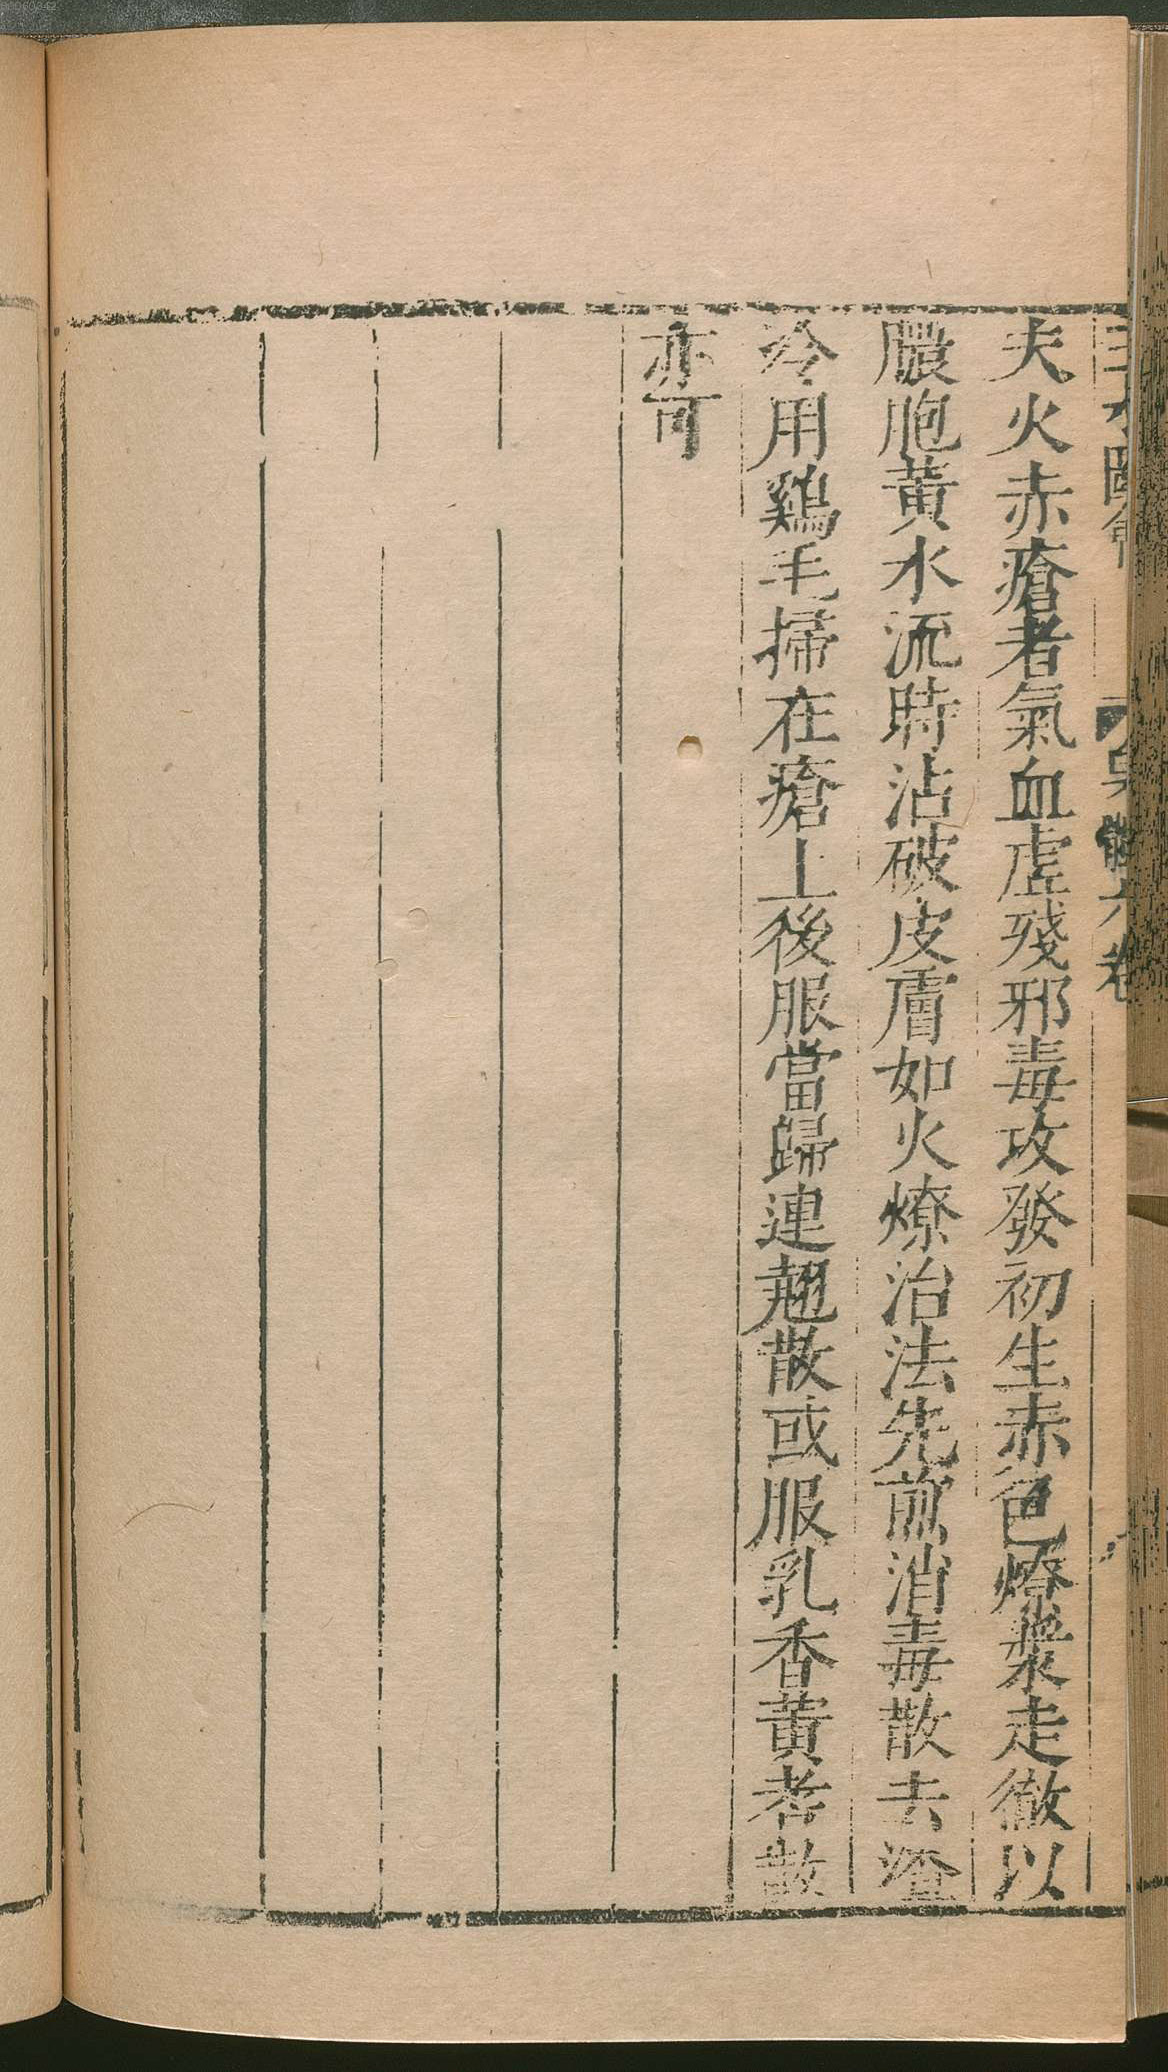 三才圖會
身體六卷
夫火赤瘡者氣血虛殘邪毒攻發初生赤色燎漿走徹以
膿胞黃水流時沾破皮膚如火燎治法先煎消毒散去渣
冷用鷄毛掃在瘡上後服當歸連翹散或服乳香黃耆散
亦可